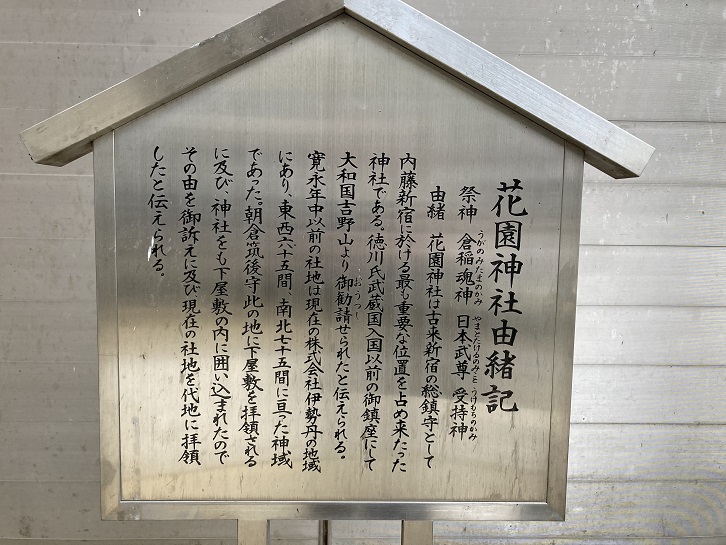 花園神社由緒記
祭神 倉稲魂神 日本武尊 受持神
うがのみたまのかみ やまとたけるのみこと うけもちのかみ
由緒 花園神社は古来新宿の総鎮守として
内藤新宿に於ける最も重要な位置を占め来たった
神社である。徳川氏武蔵国入国以前の御鎮座にして
大和国吉野山より御勧請せられたと伝えられる。
おうつし
寛永年中以前の社地は現在の株式会社伊勢丹の地域
にあり、東西六十五間 南北七十五間に亘った神域
であった。朝倉筑後守此の地に下屋敷を拝領される
に及び、神社をも下屋敷の内に囲い込まれたので
その由を御訴えに及び現在の社地を代地に拝領
したと伝えられる。